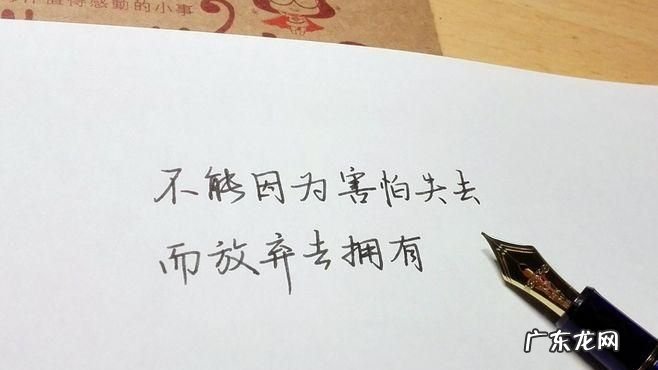 值得感動的小事
不能因为害怕失去
而放弃去拥有
广东龙网